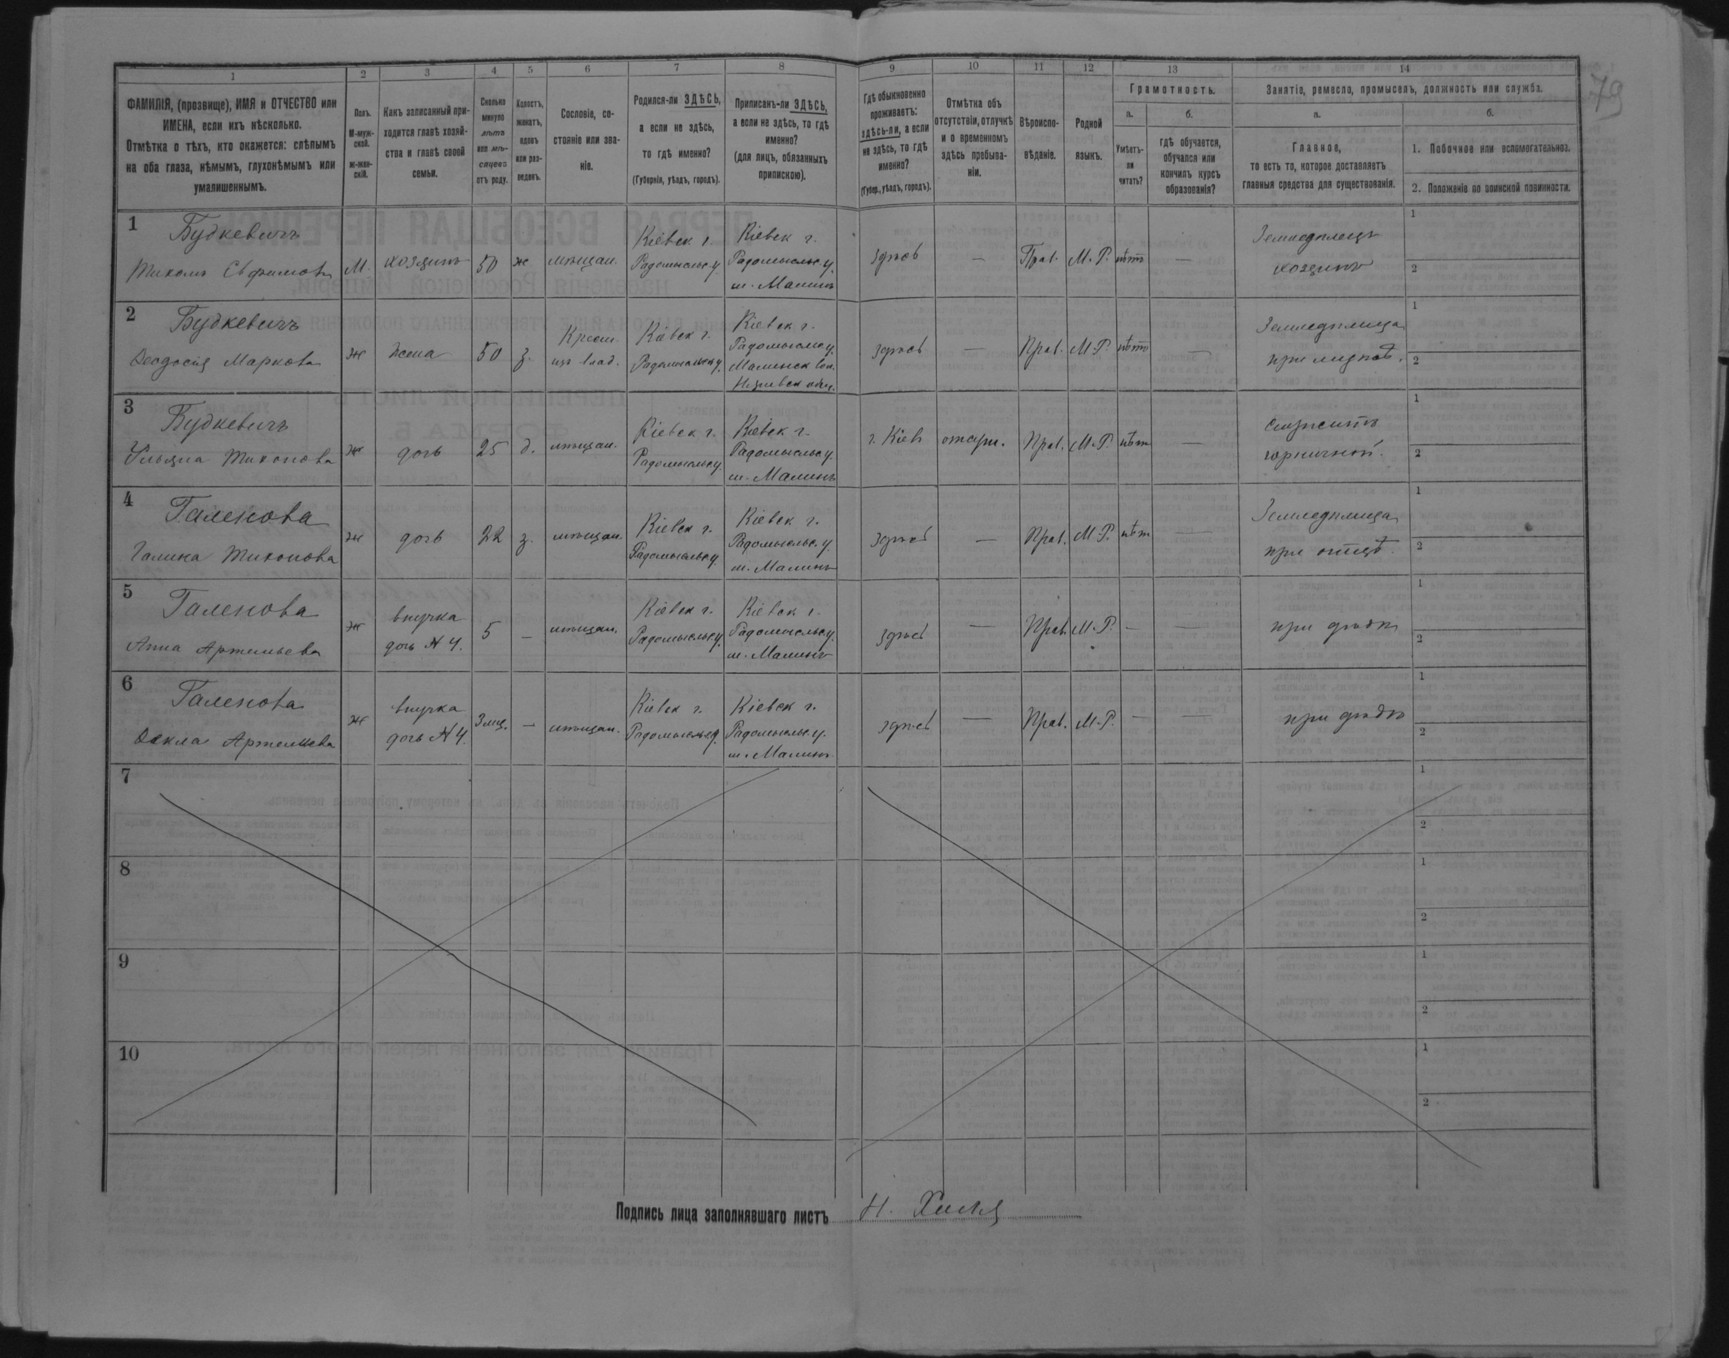 79
1 2 3 4 5 6 7 8 9 10 11 12 13 14
ФАМИЛІЯ, (прозвище), ИМЯ и ОТЧЕСТВО или
ИМЕНА, если ихъ нѣсколько.
Отмѣтка о тѣхъ, кто окажется: слѣпымъ
на оба глаза, нѣмымъ, глухонѣмымъ или
умалишеннымъ.
Полъ.
М-муж-
ской.
ж-жен-
скій.
Какъ записанный при-
ходится главѣ хозяй-
ства и главѣ своей
семьи.
Сколько
минуло
лѣтъ
или мѣ-
сяцевъ
отъ роду.
Холостъ,
женатъ,
вдовъ
или раз-
веденъ.
Сословіе, со-
стояніе или зва-
ніе.
Родился-ли ЗДѢСЬ,
а если не здѣсь,
то гдѣ именно?
(Губернія, уѣздъ, городъ).
Приписанъ-ли ЗДѢСЬ,
а если не здѣсь, то гдѣ
именно?
(для лицъ, обязанныхъ
припискою).
Гдѣ обыкновенно
проживаетъ:
здѣсь-ли, а если
не здѣсь, то гдѣ
именно?
(Губер., уѣздъ, городъ).
Отмѣтка объ
отсутствіи, отлучкѣ
и о временномъ
здѣсь пребыва-
ніи.
Вѣроиспо-
вѣданіе.
Родной
языкъ.
Грамотность.
а.
Умѣетъ-
ли
читать?
б.
гдѣ обучается,
обучался или
кончилъ курсъ
образованія?
Занятіе, ремесло, промыселъ, должность или служба.
а.
Главное,
то есть то, которое доставляетъ
главныя средства для существованія.
б.
1. Побочное или вспомогательное.
2. Положеніе по воинской повинности.
1
Будкевичъ
Тихонъ Ефимовъ
М.
хозяинъ
50
ж
мѣщан.
Кіевск г.
Радомысльс.у
Кіевск г.
Радомысльс.у.
м. Малинъ
здѣсь
—
Прав.
М.Р.
нѣтъ
—
Земледѣлецъ
хозяинъ
1
2
2
Будкевичъ
Ѳеодосія Маркова
ж
жена
50
з.
Крест.
изъ влад.
Кіевск г.
Радомысльс.у.
Кіевск г.
Радомысльс.у.
Малинск вол.
здѣсь
—
Прав.
М.Р.
нѣтъ
—
Земледѣлица
1
2
3
Будкевичъ
Ульяна Тихонова
ж
дочь
25
д.
мѣщан.
Кіевск г.
Радомысльс.у
Кіевск г.
Радомысльс.у
м. Малинъ
г. Кіевъ
Прав.
М.Р.
нѣт
—
служитъ
горничной.
1
2
4
Галенова
Галина Тихонова
ж
дочь
22
з.
мѣщан.
Кіевск г.
Радомысльс.у.
Кіевск г.
Радомысльс.у.
м. Малинъ
здѣсь
—
Прав.
М.Р.
нѣт
—
Земледѣлица
при отцѣ.
1
2
5
Галенова
Анна Артемьева
ж
внучка
дочь №4.
5
—
мѣщан.
Кіевск г.
Радомысльс.у.
Кіевск г.
Радомысльс.у
м. Малинъ
здѣсь
—
Прав.
М.Р.
—
—
при дѣдѣ
1
2
6
Галенова
Ѳекла Артемьева
ж
внучка
дочь №4.
3 мѣс.
—
мѣщан.
Кіевск г.
Радомысльс.у.
Кіевск г.
Радомысльс.у.
м. Малинъ
здѣсь
—
Прав.
М.Р.
—
при дѣдѣ
1
2
7
1
2
8
1
2
9
1
2
10
1
2
Подпись лица заполнявшаго листъ Н.